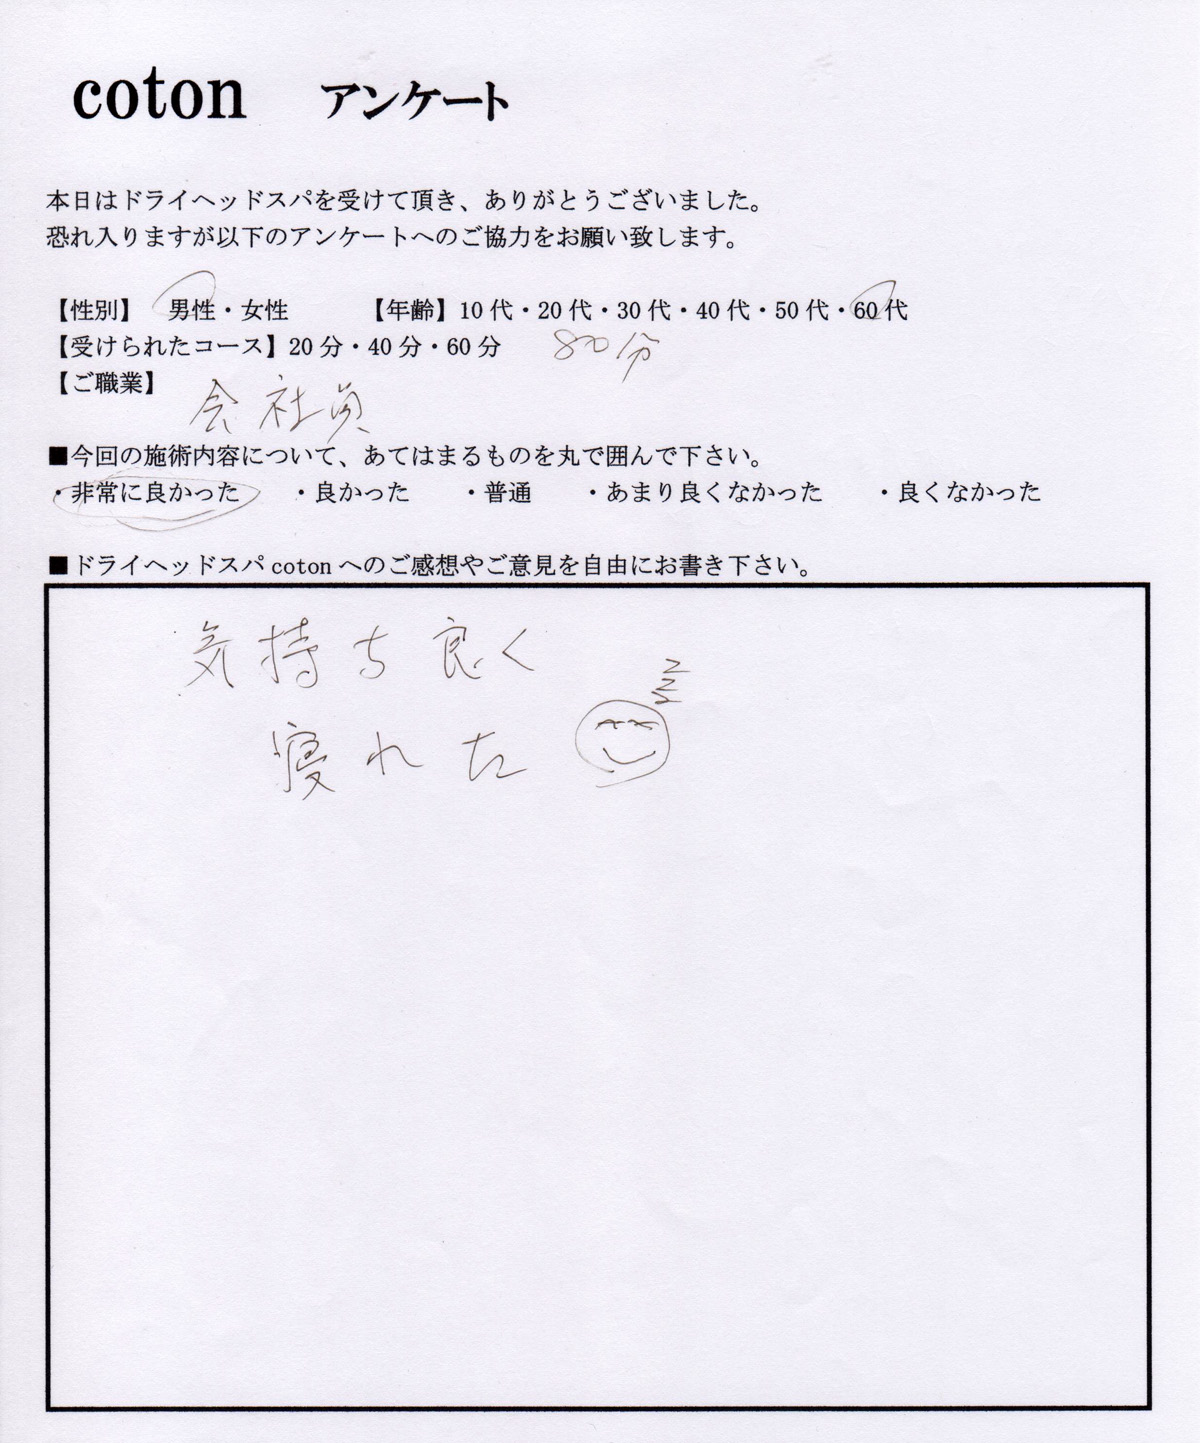 coton アンケート
本日はドライヘッドスパを受けて頂き、ありがとうございました。
恐れ入りますが以下のアンケートへのご協力をお願い致します。
【性別】 男性・女性 【年齢】10代・20代・30代・40代・50代・60代
【受けられたコース】20分・40分・60分 80分
【ご職業】 会社員
■今回の施術内容について、あてはまるものを丸で囲んで下さい。
・非常に良かった ・良かった ・普通 ・あまり良くなかった ・良くなかった
■ドライヘッドスパcotonへのご感想やご意見を自由にお書き下さい。
気持ち良く
zzz
寝れた